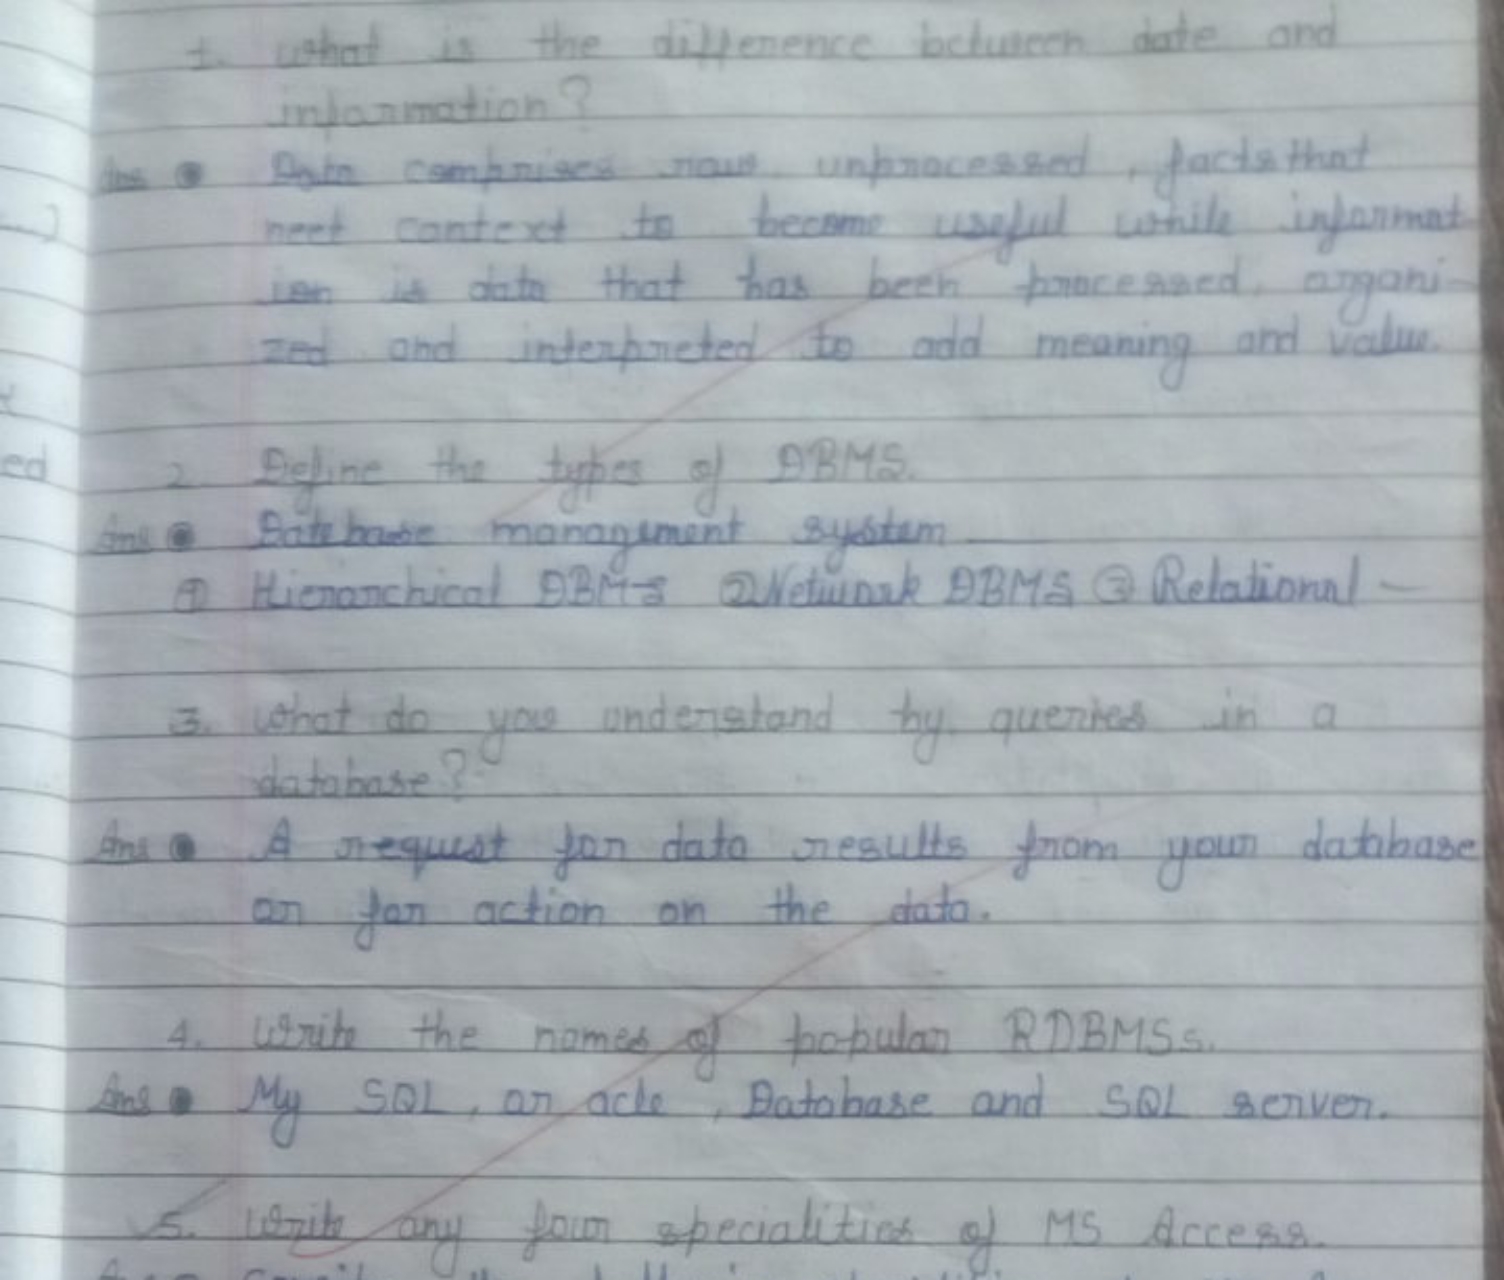 1. What is the difference between date and
information?
Ans Data comprises raw unprocessed, facts that
neet context to become useful while informat
ion is data that has been processed, organi-
zed and interpreted to add meaning and value.
ed
2. Define the types of DBMS.
Ans Database management system
① Hierarchical DBMS ② Network DBMS ③ Relational -
3. What do you understand by queries in a
database?
Ans A request for data results from your database
or for action on the data.
4. Write the names of popular RDBMSs.
Ans My SQL, or acle, Database and SQL server.
5. Write any four specialities of MS Access.